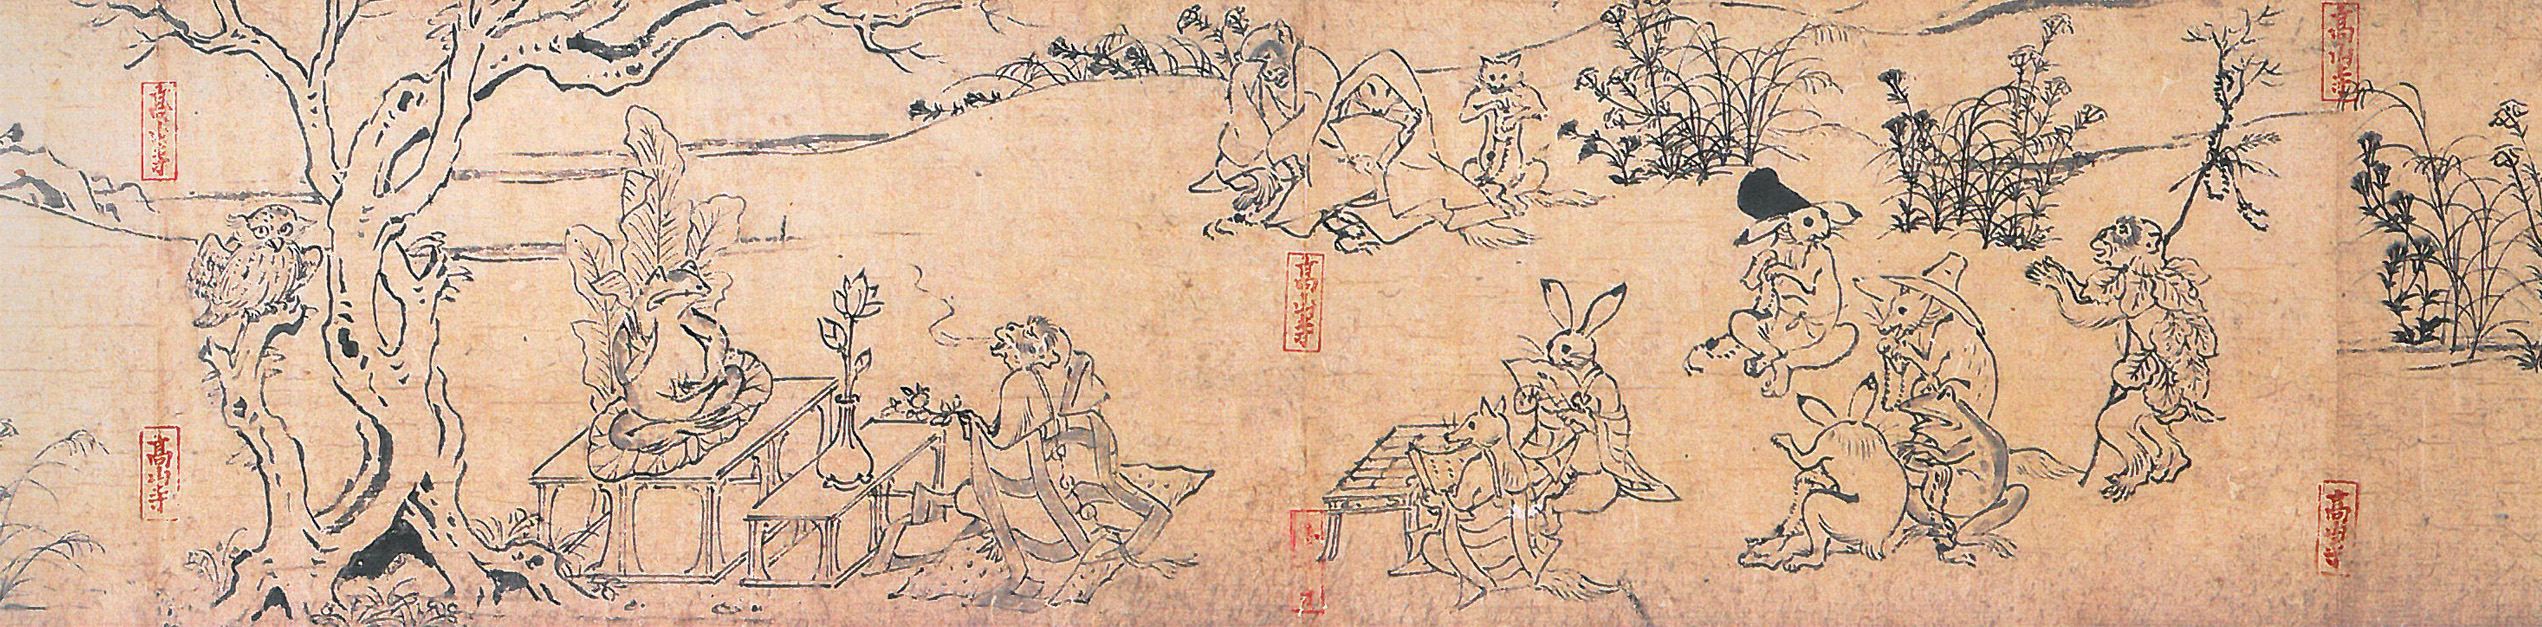 高山寺
高山寺
高山寺
高山寺
高山寺